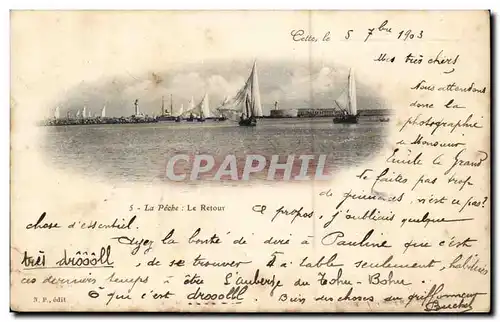 Cette, le 5 7bre 1903
Mes très chers
Nous attendons
donc la
photographie
de Monsieur
Emile le Grand
Ne faites pas trop
de grimaces, n'est ce pas ?
CPAPHIL
5 - La Pêche : Le Retour
A propos, j'oubliais quelque
chose d'essentiel.
Ayez la bonté de dire à Pauline que c'est
très drôôôll, de se trouver à table seulement, habituées
ces derniers temps à être à l'auberge du Tohu-Bohu.
ô que c'est droooll.
Bien des choses du
N. P., édit